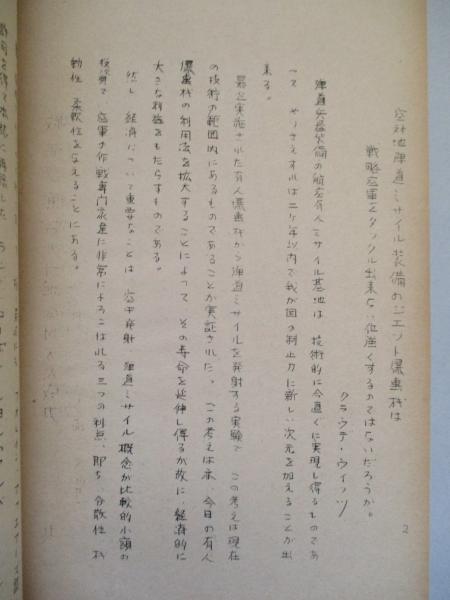 空対地弾道ミサイル装備のジェット爆撃機は
戦略空軍をタックル出来ない位強くするのではないだろうか。
クラウデ・ウイッツ
2
弾道兵器装備の航空有人ミサイル基地は 技術的に今直ぐに実現し得るものであ
って やりさえすれば二ヶ年以内で我が国の制止力に新しい次元を加えることが出
来る。
最近実施された有人爆撃機から弾道ミサイルを発射する実験で この考えは現在
の技術の範囲内にあるものであることが実証された。この考えは亦、今日の有人
爆撃機の利用法を拡大することによって その寿命を延伸し得るが故に、経済的に
大きな利益をもたらすものである。
然し 経済について重要なことは 空中発射 弾道ミサイル概念が比較的小額の
投資で 空軍の作戦専門家達に非常によろこばれる三つの利点、即ち、分散性 机
動性 柔軟性を与えることにある。